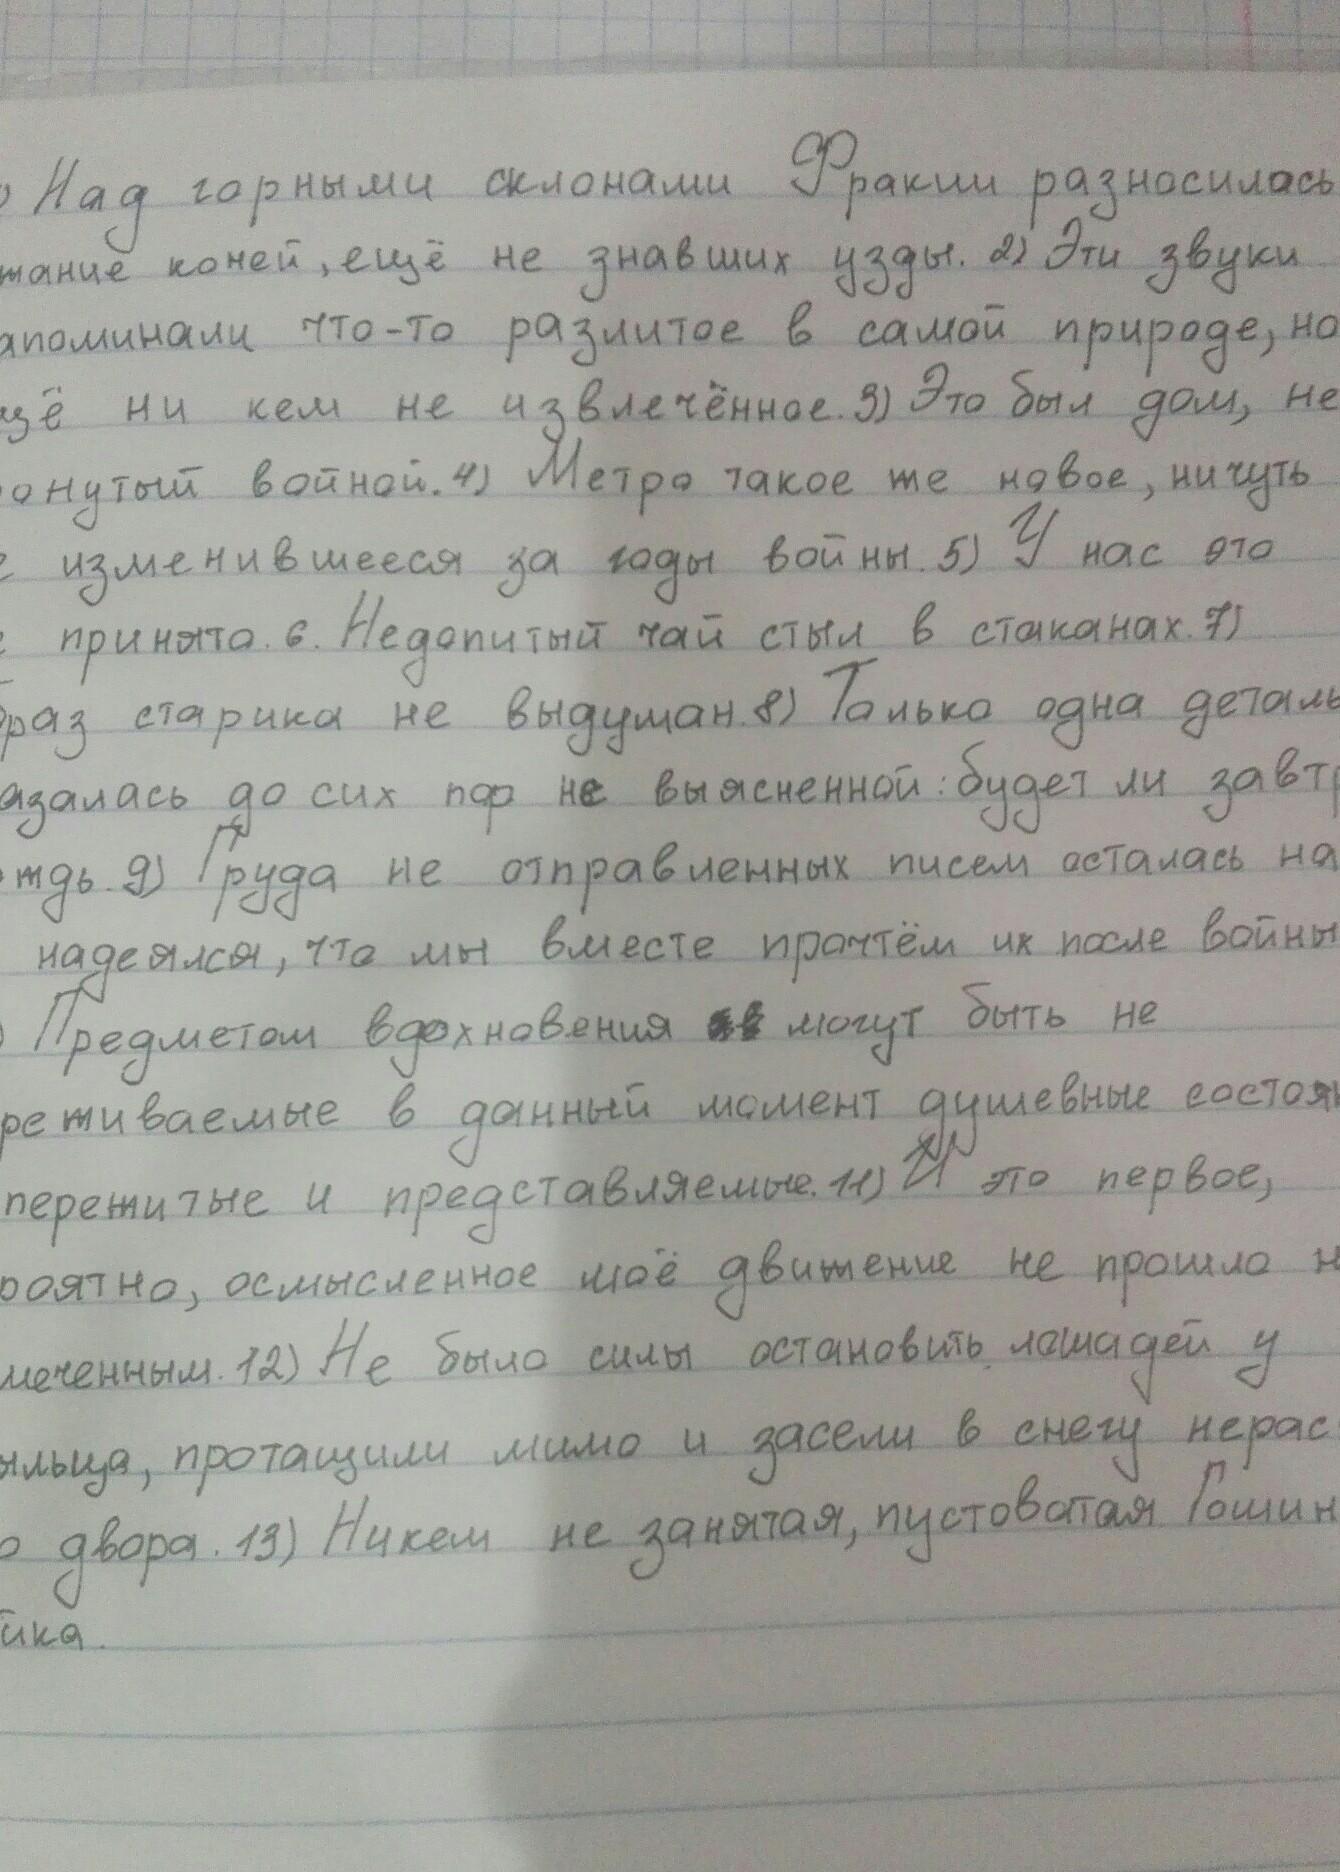 ) Над горными склонами Фракии разносилась
жание коней, ещё не знавших узды. 2) Эти звуки
апоминали что-то разлитое в самой природе, но
щё ни кем не извлечённое. 3) Это был дом, не
ронутый войной. 4) Метро такое же новое, ничуть
е изменившееся за годы войны. 5) У нас это
е принято. 6. Недопитый чай стыл в стаканах. 7)
браз старика не выдуман. 8) Только одна деталь
азалась до сих пор не выясненной: будет ли завтр
ождь. 9) Груда не отправленных писем осталась на
надеялся, что мы вместе прочтём их после войны
) Предметом вдохновения могут быть не
реживаемые в данный момент душевные состоян
пережитые и представляемые. 11) И это первое,
роятно, осмысленное моё движение не прошло н
меченным. 12) Не было силы остановить лошадей у
ыльца, протащили мимо и засели в снегу нерас
о двора. 13) Никем не занятая, пустоватая Гошин
йка.